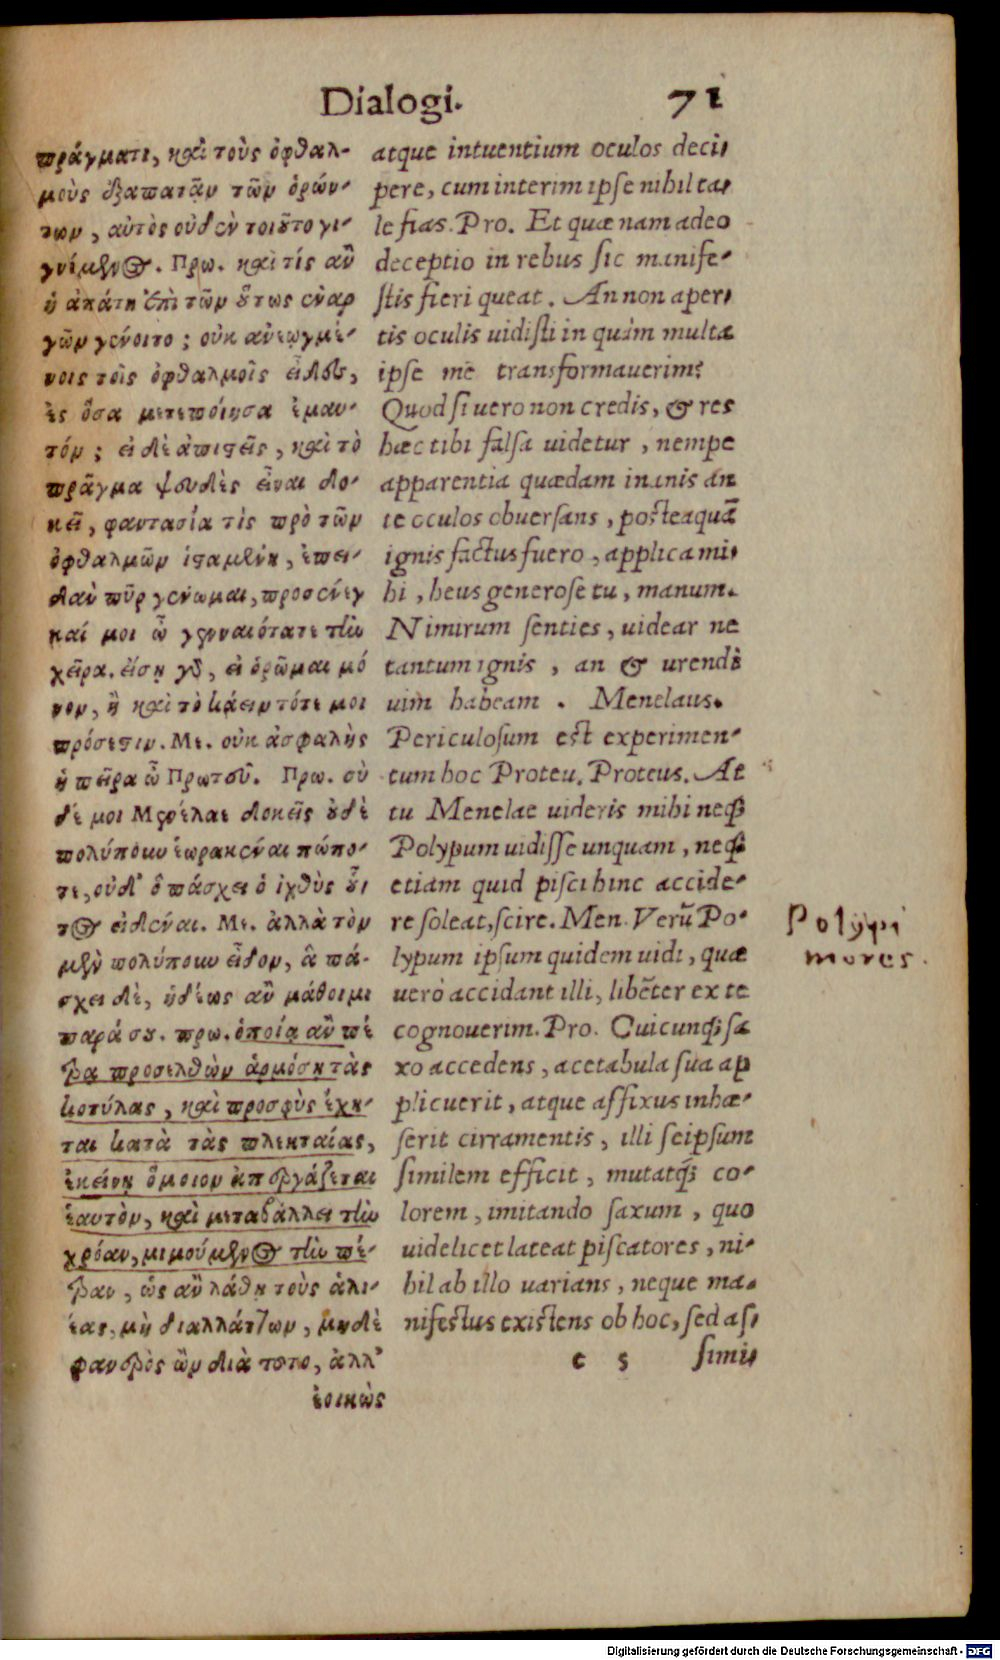 Dialogi. 71
πράγματι, καὶ τοὺς ὀφθαλ-
μοὺς ἐξαπατᾷν τῶν ὁρών-
των, αὐτὸς οὐδὲν τοιοῦτο γι-
γνόμενος. Πρω. καὶ τίς ἂν
ἡ ἀπάτη ἐπὶ τῶν οὕτως ἐναρ
γῶν γένοιτο; οὐκ ἀνεῳγμέ-
νοις τοῖς ὀφθαλμοῖς εἶδες,
ἐς ὅσα μετεποίησα ἐμαυ-
τόν; εἰ δὲ ἀπιστεῖς, καὶ τὸ
πρᾶγμα ψευδὲς εἶναι δο-
κεῖ, φαντασία τὶς πρὸ τῶν
ὀφθαλμῶν ἱσταμένη, ἐπει-
δὰν πῦρ γένωμαι, προσένεγ
καί μοι ὦ γενναιότατε τὴν
χεῖρα. εἴσῃ γὰρ, εἰ ὁρῶμαι μό
νον, ἢ καὶ τὸ κάειν τότε μοι
πρόσεστιν. Με. οὐκ ἀσφαλὴς
ἡ πεῖρα ὦ Πρωτεῦ. Πρω. σὺ
δέ μοι Μενέλαε δοκεῖς οὐδὲ
πολύπουν ἑωρακέναι πώπο-
τε, οὐδ' ὃ πάσχει ὁ ἰχθὺς οὗ
τος εἰδέναι. Με. ἀλλὰ τὸν
μὲν πολύπουν εἶδον, ἃ πά-
σχει δὲ, ἡδέως ἂν μάθοιμι
παρά σου. πρω. ὁποίᾳ ἂν πέ
τρᾳ προσελθὼν ἁρμόσῃ τὰς
κοτύλας, καὶ προσφὺς ἔχη-
ται κατὰ τὰς πλεκταίας,
ἐκείνῃ ὅμοιον ἀπεργάζεται
ἑαυτὸν, καὶ μεταβάλλει τὴν
χρόαν, μιμούμενος τὴν πέ-
τραν, ὡς ἂν λάθῃ τοὺς ἁλι-
έας, μὴ διαλλάττων, μηδὲ
φανερὸς ὢν διὰ τοῦτο, ἀλλ'
ἐοικὼς
atque intuentium oculos deci-
pere, cum interim ipse nihil ta-
le fias. Pro. Et quæ nam adeo
deceptio in rebus sic manife-
stis fieri queat. An non aper-
tis oculis uidisti in quàm multa
ipse me transformauerim?
Quod si uero non credis, & res
hæc tibi falsa uidetur, nempe
apparentia quædam inanis an
te oculos obuersans, posteaquã
ignis factus fuero, applica mi-
hi, heus generose tu, manum.
Nimirum senties, uidear ne
tantum ignis, an & urendi
uim habeam. Menelaus.
Periculosum est experimen-
tum hoc Proteu. Proteus. At
tu Menelae uideris mihi neq;
Polypum uidisse unquam, neq;
etiam quid pisci hinc accide-
re soleat, scire. Men. Verũ Po-
lypum ipsum quidem uidi, quæ
uerò accidant illi, libẽter ex te
cognouerim. Pro. Cuicunq; sa
xo accedens, acetabula sua ap
plicuerit, atque affixus inhæ-
serit cirramentis, illi seipsum
similem efficit, mutatq; co-
lorem, imitando saxum, quo
uidelicet lateat piscatores, ni-
hil ab illo uarians, neque ma-
nifestus existens ob hoc, sed as-
e 5 simi-
Polypi
mores.
Digitalisierung gefördert durch die Deutsche Forschungsgemeinschaft - DFG